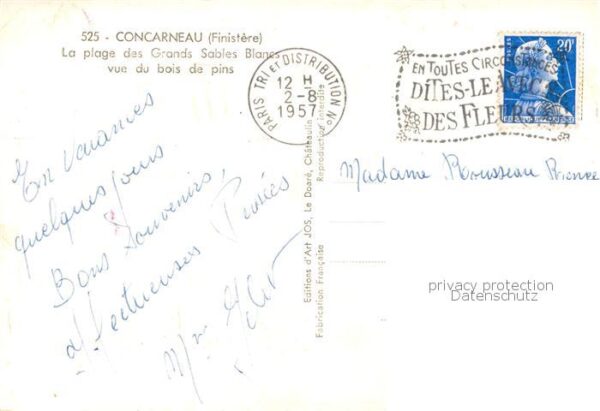 525 - CONCARNEAU (Finistère)
La plage des Grands Sables Blancs
vue du bois de pins
PARIS TRI et DISTRIBUTION No
12 H
2-8
1957
EN TOUTES CIRCONSTANCES
DITES-LE AVEC
DES FLEURS
20F
En vacances
quelques jours
Bons Souvenirs,
affectueuses Pensées
Mme
Editions d'Art JOS, Le Doaré, Châteaulin
Reproduction interdite
Fabrication Française
Madame Rousseau
privacy protection
Datenschutz